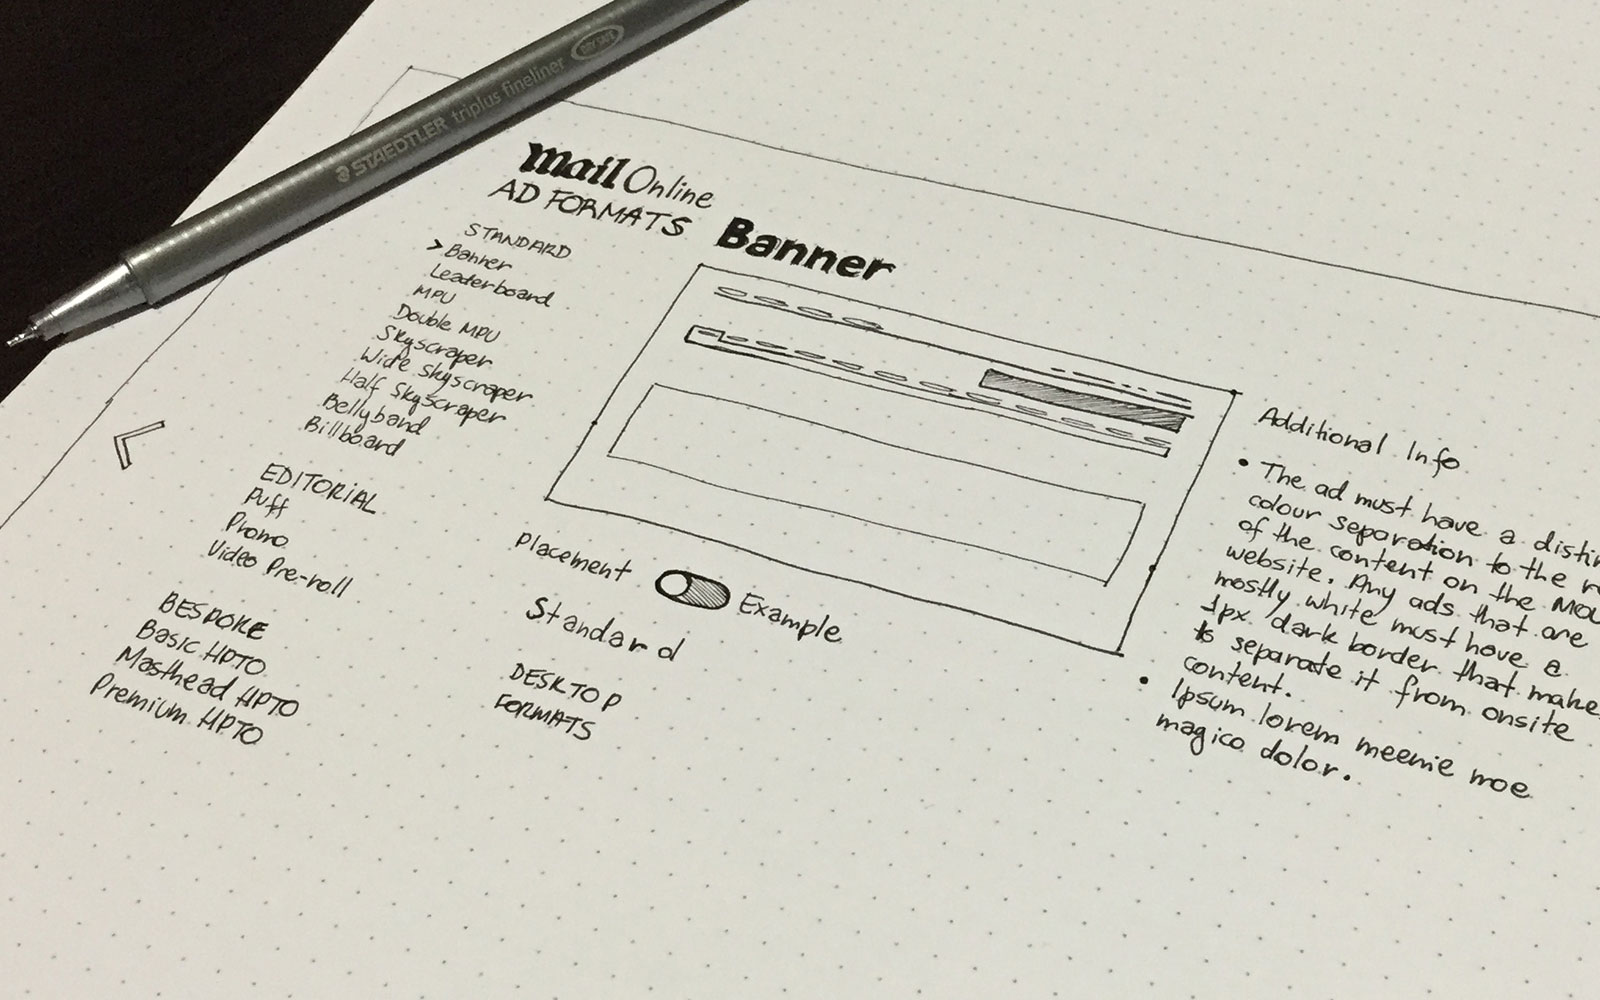 STAEDTLER triplus fineliner
DRY SAFE
Mail Online
AD FORMATS
STANDARD
> Banner
Leaderboard
MPU
Double MPU
Skyscraper
Wide Skyscraper
Half Skyscraper
Bellyband
Billboard
EDITORIAL
Puff
Promo
Video Pre-roll
BESPOKE
Basic HPTO
Masthead HPTO
Premium HPTO
Banner
Placement
Example
Standard
DESKTOP
FORMATS
Additional Info
• The ad must have a
colour separation to the
of the content on the
website. Any ads that are
mostly white must have a
1px dark border that
to separate it from onsite
content.
• Ipsum lorem meenie moe
magico dolor.